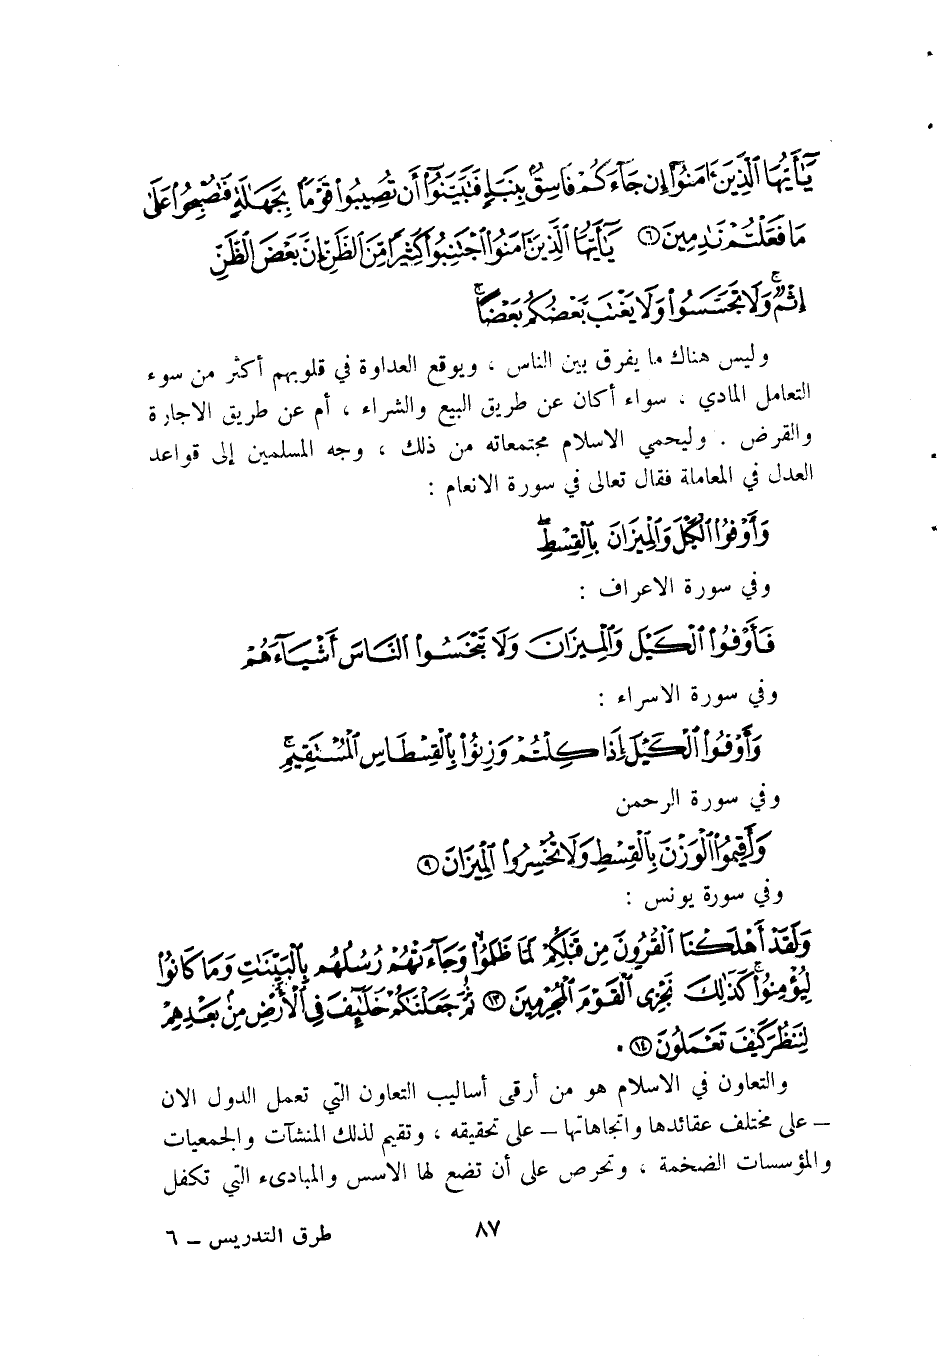 يَٰٓأَيُّهَا ٱلَّذِينَ ءَامَنُوٓا۟ إِن جَآءَكُمْ فَاسِقٌۢ بِنَبَإٍ فَتَبَيَّنُوٓا۟ أَن تُصِيبُوا۟ قَوْمًۢا بِجَهَٰلَةٍ فَتُصْبِحُوا۟ عَلَىٰ
مَا فَعَلْتُمْ نَٰدِمِينَ ٦ يَٰٓأَيُّهَا ٱلَّذِينَ ءَامَنُوا۟ ٱجْتَنِبُوا۟ كَثِيرًا مِّنَ ٱلظَّنِّ إِنَّ بَعْضَ ٱلظَّنِّ
إِثْمٌ ۖ وَلَا تَجَسَّسُوا۟ وَلَا يَغْتَب بَّعْضُكُم بَعْضًا ۚ
وليس هناك ما يفرق بين الناس ، ويوقع العداوة في قلوبهم أكثر من سوء
التعامل المادي ، سواء أكان عن طريق البيع والشراء ، أم عن طريق الاجارة
والقرض . وليحمي الاسلام مجتمعاته من ذلك ، وجه المسلمين إلى قواعد
العدل في المعاملة فقال تعالى في سورة الانعام :
وَأَوْفُوا۟ ٱلْكَيْلَ وَٱلْمِيزَانَ بِٱلْقِسْطِ ۖ
وفي سورة الاعراف :
فَأَوْفُوا۟ ٱلْكَيْلَ وَٱلْمِيزَانَ وَلَا تَبْخَسُوا۟ ٱلنَّاسَ أَشْيَآءَهُمْ
وفي سورة الاسراء :
وَأَوْفُوا۟ ٱلْكَيْلَ إِذَا كِلْتُمْ وَزِنُوا۟ بِٱلْقِسْطَاسِ ٱلْمُسْتَقِيمِ ۚ
وفي سورة الرحمن
وَأَقِيمُوا۟ ٱلْوَزْنَ بِٱلْقِسْطِ وَلَا تُخْسِرُوا۟ ٱلْمِيزَانَ ٩
وفي سورة يونس :
وَلَقَدْ أَهْلَكْنَا ٱلْقُرُونَ مِن قَبْلِكُمْ لَمَّا ظَلَمُوا۟ ۙ وَجَآءَتْهُمْ رُسُلُهُم بِٱلْبَيِّنَٰتِ وَمَا كَانُوا۟
لِيُؤْمِنُوا۟ ۚ كَذَٰلِكَ نَجْزِى ٱلْقَوْمَ ٱلْمُجْرِمِينَ ١٣ ثُمَّ جَعَلْنَٰكُمْ خَلَٰٓئِفَ فِى ٱلْأَرْضِ مِنۢ بَعْدِهِمْ
لِنَنظُرَ كَيْفَ تَعْمَلُونَ ١٤ .
والتعاون في الاسلام هو من أرقى أساليب التعاون التي تعمل الدول الان
– على مختلف عقائدها واتجاهاتها – على تحقيقه ، وتقيم لذلك المنشآت والجمعيات
والمؤسسات الضخمة ، وتحرص على أن تضع لها الاسس والمبادىء التي تكفل
٨٧
طرق التدريس – ٦